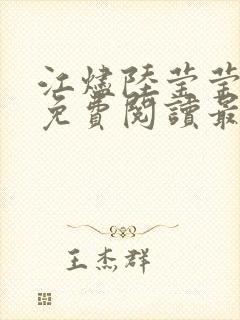 江燼陸莹莹
免費閱讀最
王杰群